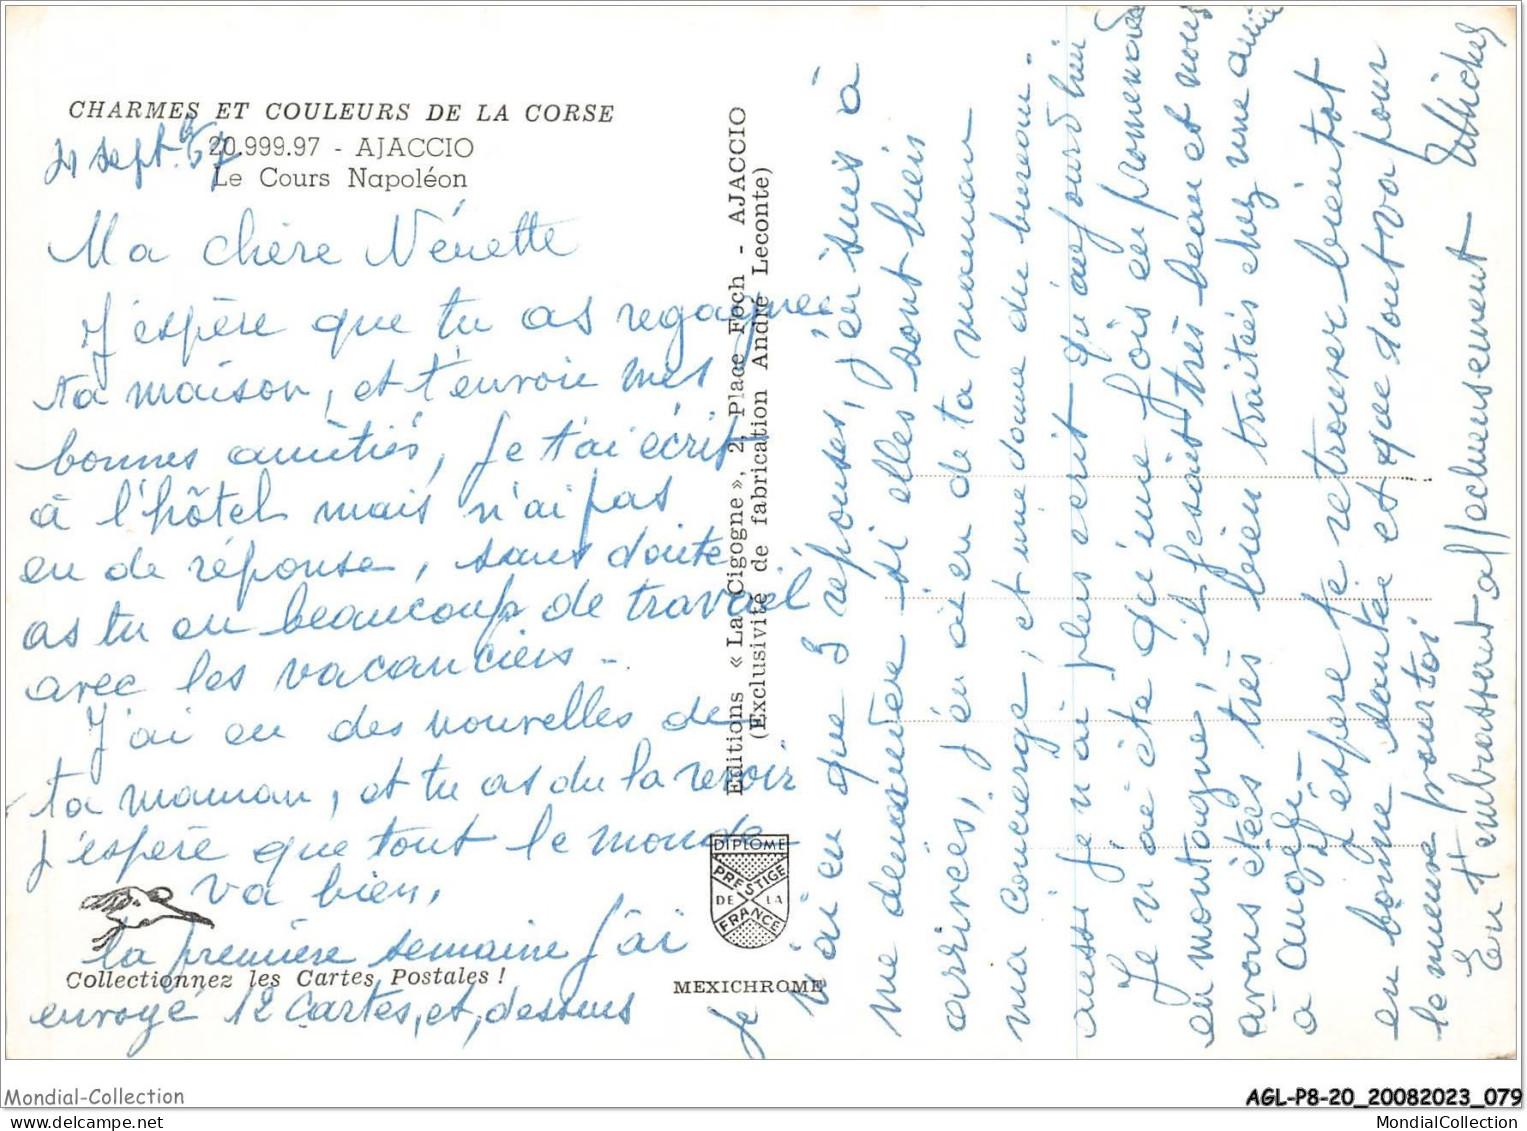 CHARMES ET COULEURS DE LA CORSE
20.999.97 - AJACCIO
Le Cours Napoléon
21 sept. 67
Ma chère Nénette
J'espère que tu as regagnée
ta maison, et t'envoie mes
bonnes amitiés, Je t'ai écrit
à l'hôtel mais n'ai pas
eu de réponse, sans doute
as tu eu beaucoup de travail
avec les vacanciers -
J'ai eu des nouvelles de
ta maman, et tu as du la revoir
J'espère que tout le monde
va bien,
la première semaine j'ai
envoyé 12 cartes, et, dessus
je
n'ai eu que 3 réponses, j'en suis à
me demander si elles sont bien
arrivées, j'en ai eu de ta maman
ma concierge, et une dame du bureau -
aussi je n'ai plus écrit qu'aujourd'hui
Je n'ai été qu'une fois en promenade
en montagne, il fesait très beau et nous
avons étés très bien traités chez une amie
a Augé -
J'espère te retrouver bientot
en bonne santée et que tout va pour
le mieux pour toi
En t'embrassant affectueusement
Editions « La Cigogne », 2, Place Foch - AJACCIO
(Exclusivité de fabrication André Leconte)
DIPLOME
PRESTIGE
DE LA
FRANCE
MEXICHROME
Collectionnez les Cartes Postales !
Mondial-Collection
AGL-P8-20_20082023_079
MondialCollection